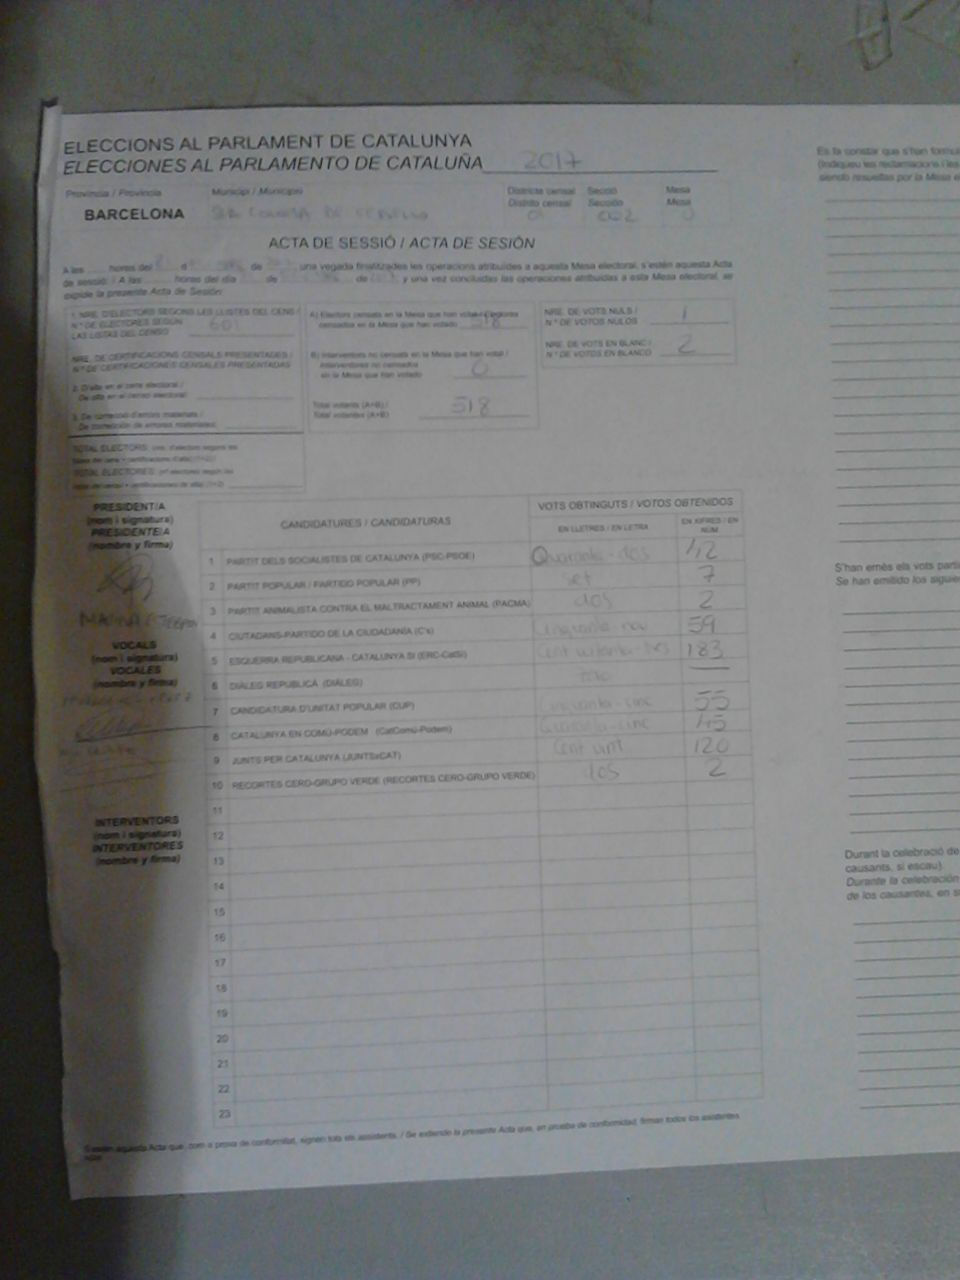 ELECCIONS AL PARLAMENT DE CATALUNYA
ELECCIONES AL PARLAMENTO DE CATALUÑA 2017
Provincia / Provincia Municipi / Municipio Districte censal Secció Mesa
Distrito censal Sección Mesa
BARCELONA STA COLOMA DE CERVELLO 01 002
ACTA DE SESSIÓ / ACTA DE SESIÓN
A les hores del de una vegada finalitzades les operacions atribuïdes a aquesta Mesa electoral, s'estén aquesta Acta
de sessió. / A las horas del día de de y una vez concluidas las operaciones atribuidas a esta Mesa electoral, se
expide la presente Acta de Sesión:
1. NRE. D'ELECTORS SEGONS LES LLISTES DEL CENS /
Nº DE ELECTORES SEGÚN
LAS LISTAS DEL CENSO 601
NRE. DE CERTIFICACIONS CENSALS PRESENTADES /
Nº DE CERTIFICACIONES CENSALES PRESENTADAS
2. D'alta en el cens electoral /
De alta en el censo electoral:
3. De correcció d'errors materials /
De corrección de errores materiales:
TOTAL ELECTORS:
TOTAL ELECTORES:
A) Electors censats en la Mesa que han votat / Electores
censados en la Mesa que han votado 518
B) Interventors no censats en la Mesa que han votat /
Interventores no censados
en la Mesa que han votado 0
Total votants (A+B) /
Total votantes (A+B) 518
NRE. DE VOTS NULS /
Nº DE VOTOS NULOS 1
NRE. DE VOTS EN BLANC /
Nº DE VOTOS EN BLANCO 2
PRESIDENT/A
(nom i signatura)
PRESIDENTE/A
(nombre y firma)
VOCALS
(nom i signatura)
VOCALES
(nombre y firma)
INTERVENTORS
(nom i signatura)
INTERVENTORES
(nombre y firma)
CANDIDATURES / CANDIDATURAS VOTS OBTINGUTS / VOTOS OBTENIDOS
EN LLETRES / EN LETRA EN XIFRES / EN NÚM.
1 PARTIT DELS SOCIALISTES DE CATALUNYA (PSC-PSOE) Quaranta-dos 42
2 PARTIT POPULAR / PARTIDO POPULAR (PP) set 7
3 PARTIT ANIMALISTA CONTRA EL MALTRACTAMENT ANIMAL (PACMA) dos 2
4 CIUTADANS-PARTIDO DE LA CIUDADANÍA (C's) Cinquanta-nou 59
5 ESQUERRA REPUBLICANA - CATALUNYA SÍ (ERC-CatSí) Cent vuitanta-tres 183
6 DIÀLEG REPUBLICÀ (DIÀLEG)
7 CANDIDATURA D'UNITAT POPULAR (CUP) Cinquanta-cinc 55
8 CATALUNYA EN COMÚ-PODEM (CatComú-Podem) Quaranta-cinc 45
9 JUNTS PER CATALUNYA (JUNTSxCAT) Cent vint 120
10 RECORTES CERO-GRUPO VERDE (RECORTES CERO-GRUPO VERDE) dos 2
11
12
13
14
15
16
17
18
19
20
21
22
23
S'estén aquesta Acta que, com a prova de conformitat, signen tots els assistents. / Se extiende la presente Acta que, en prueba de conformidad, firman todos los asistentes.
Es fa constar que s'han formul
(indiqueu les reclamacions i les
siendo resueltas por la Mesa e
S'han emès els vots parti
Se han emitido los siguie
Durant la celebració de
causants, si escau).
Durante la celebración
de los causantes, en s